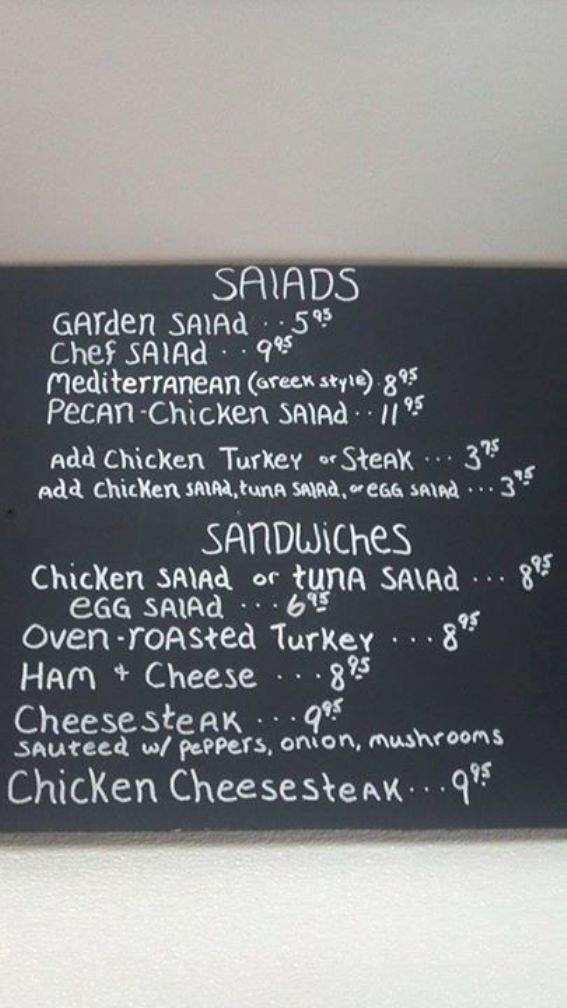 SALADS
Garden Salad .. 5.95
Chef Salad .. 9.95
Mediterranean (Greek style) . 8.95
Pecan-Chicken Salad .. 11.95
Add Chicken Turkey or Steak ... 3.75
Add Chicken Salad, tuna Salad, or egg Salad ... 3.95
SANDWICHES
Chicken Salad or tuna Salad ... 8.95
egg Salad ... 6.95
Oven-roasted Turkey ... 8.95
Ham + Cheese ... 8.95
Cheesesteak ... 9.95
sauteed w/ peppers, onion, mushrooms
Chicken Cheesesteak ... 9.95